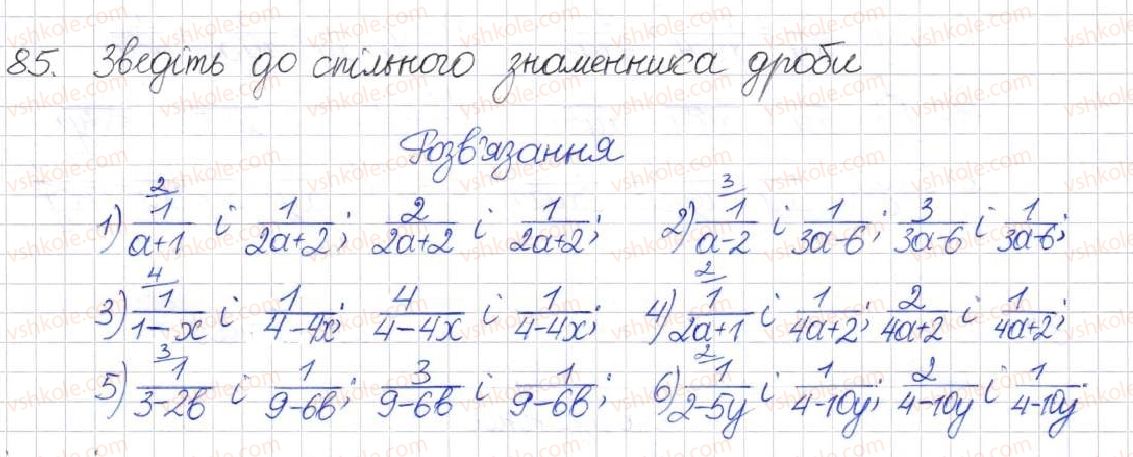 85. Зведіть до спільного знаменника дроби
Розв'язання
1) 2/ 1/(a+1) і 1/(2a+2); 2/(2a+2) і 1/(2a+2); 2) 3/ 1/(a-2) і 1/(3a-6); 3/(3a-6) і 1/(3a-6);
3) 4/ 1/(1-x) і 1/(4-4x); 4/(4-4x) і 1/(4-4x); 4) 2/ 1/(2a+1) і 1/(4a+2); 2/(4a+2) і 1/(4a+2);
5) 3/ 1/(3-2в) і 1/(9-6в); 3/(9-6в) і 1/(9-6в); 6) 2/ 1/(2-5y) і 1/(4-10y); 2/(4-10y) і 1/(4-10y).